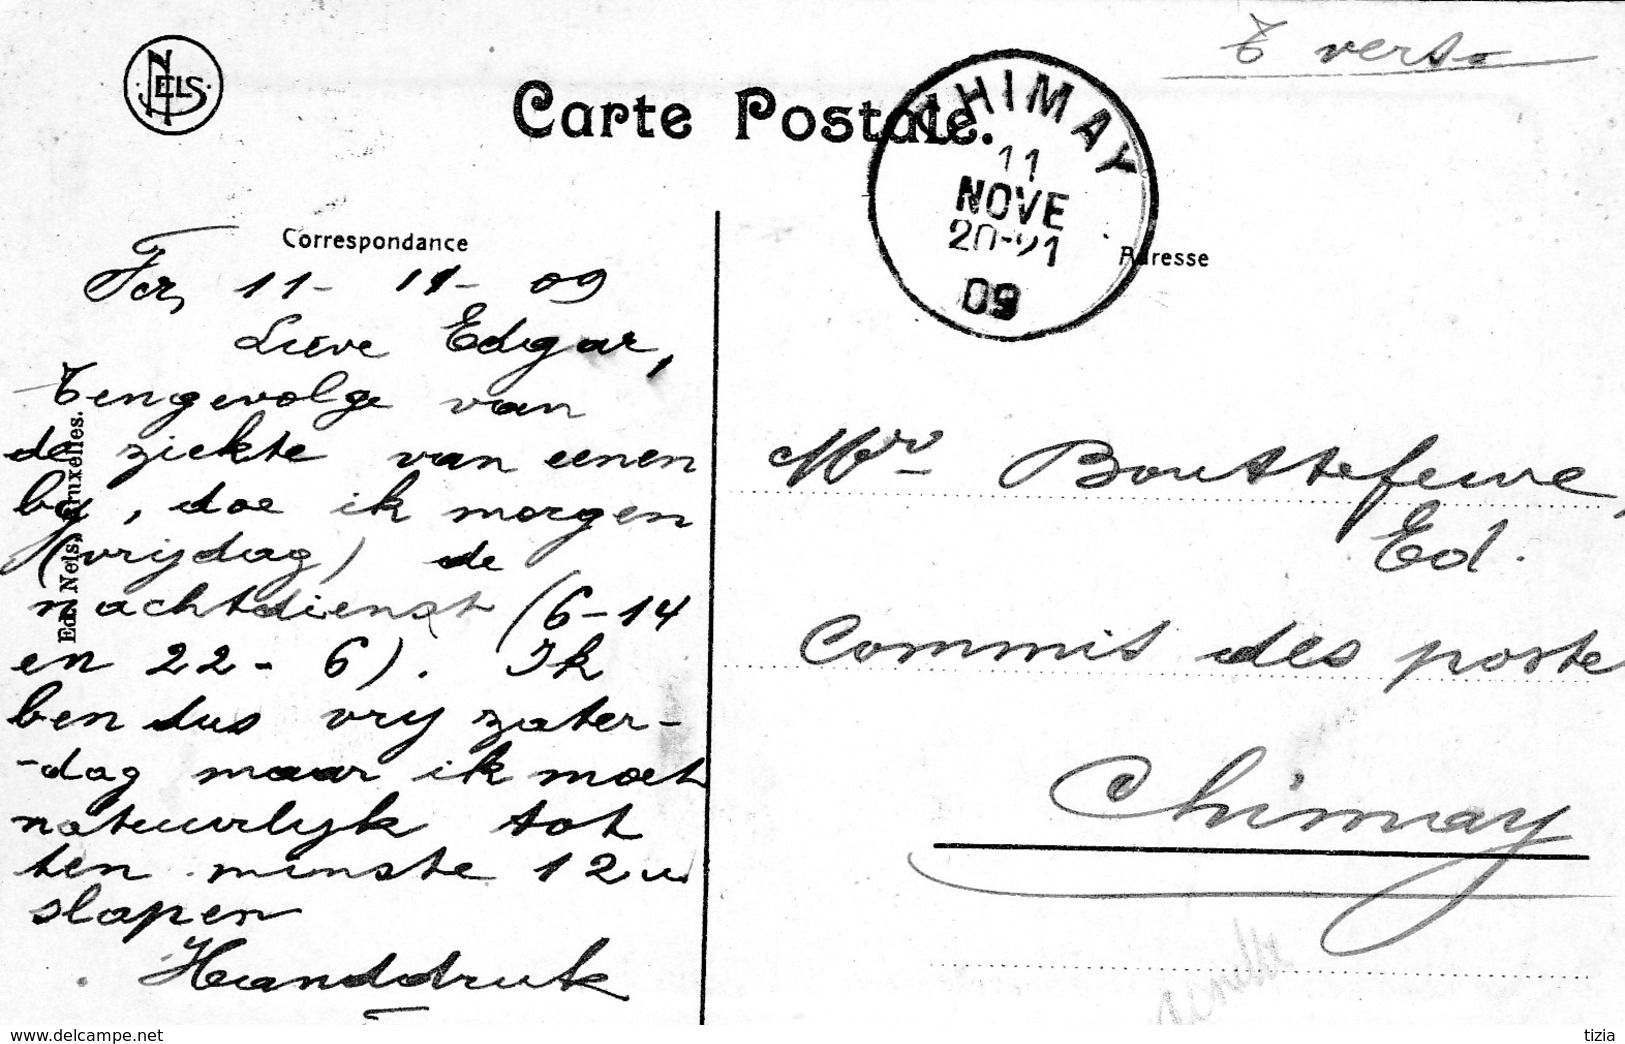 T verso
NELS.
Carte Postale.
CHIMAY
11
NOVE
20-21
09
Correspondance
Adresse
11-11-09
Lieve Edgar,
Tengevolge van
de ziekte van eenen
by, doe ik morgen
(vrijdag) de
nachtdienst (6-14
en 22-6). Ik
ben dus vry zater-
-dag maar ik moet
natuurlyk tot
ten minste 12u
slapen
Handdruk
Ed. Nels, Bruxelles.
Mr Bouttefeuve,
Ed.
Commis des poste
Chimay
www.delcampe.net
tizia